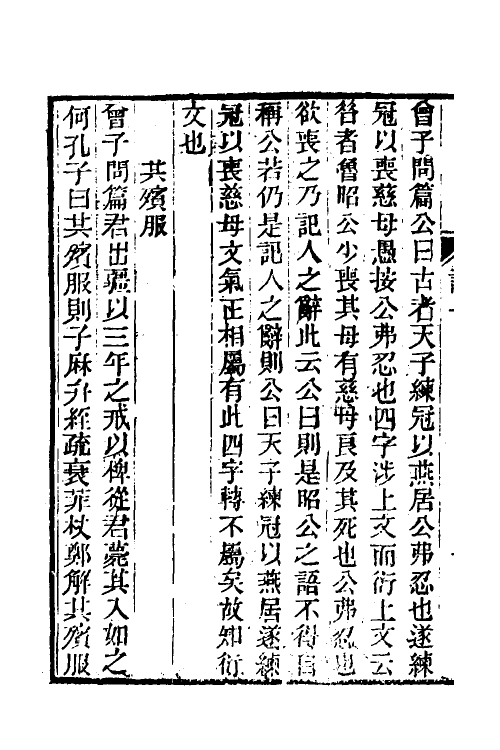 曾子問篇公曰古者天子練冠以燕居公弗忍也遂練
冠以喪慈母愚按公弗忍也四字涉上文而衍上文云
昔者魯昭公少喪其母有慈母良及其死也公弗忍也
欲喪之乃記人之辭此云公曰則是昭公之語不得自
稱公若仍是記人之辭則公曰天子練冠以燕居遂練
冠以喪慈母文氣正相屬有此四字轉不屬矣故知衍
文也
共殯服
曾子問篇君出疆以三年之戒以椑從君薨其入如之
何孔子曰共殯服則子麻弁絰疏衰菲杖鄭解共殯服